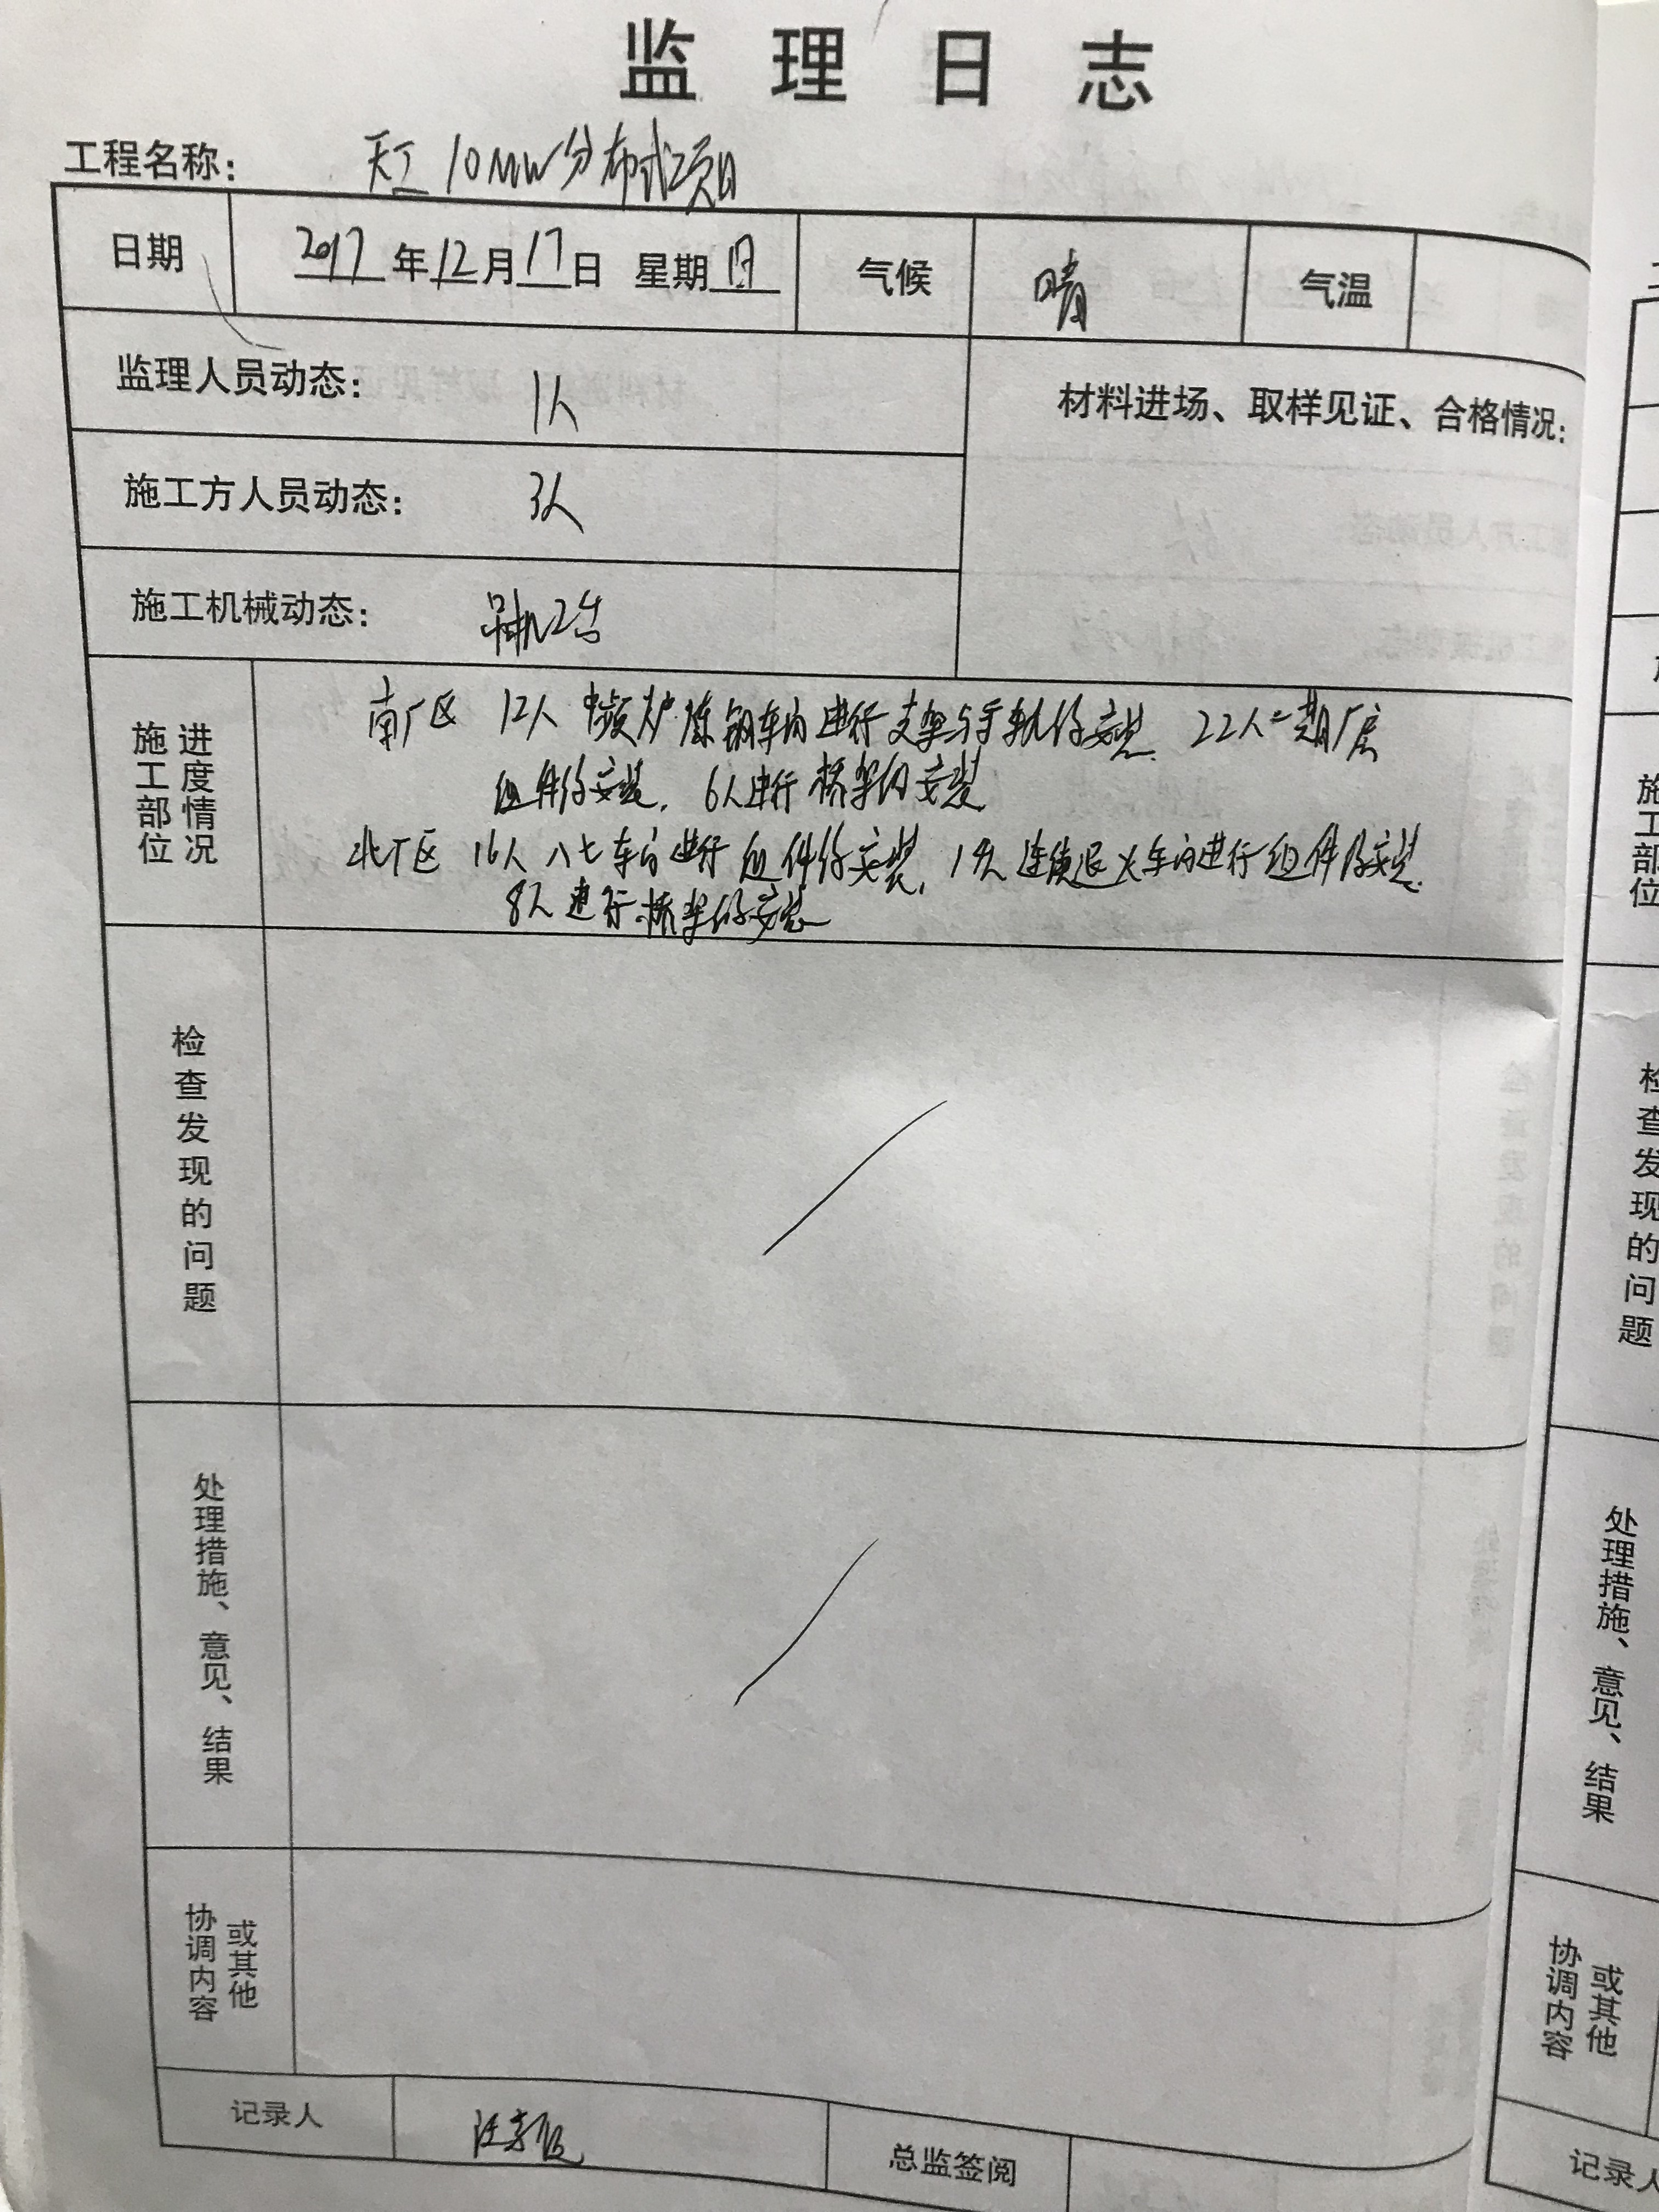 监理日志
工程名称： 天工10MW分布式项目
日期 2017年12月17日 星期日 气候 晴 气温
监理人员动态： 1人
材料进场、取样见证、合格情况：
施工方人员动态： 3人
施工机械动态： 吊机2台
施工部位 进度情况
南厂区 12人中频炉炼钢车间进行支架与导轨的安装. 22人二期厂房
组件的安装. 6人进行桥架的安装
北厂区 16人八七车间进行组件的安装, 人连续退火车间进行组件的安装.
8人进行桥架的安装
检查发现的问题
处理措施、意见、结果
协调内容 或其他
记录人 汪
总监签阅
施工部位
检查发现的问题
处理措施、意见、结果
协调内容 或其他
记录人